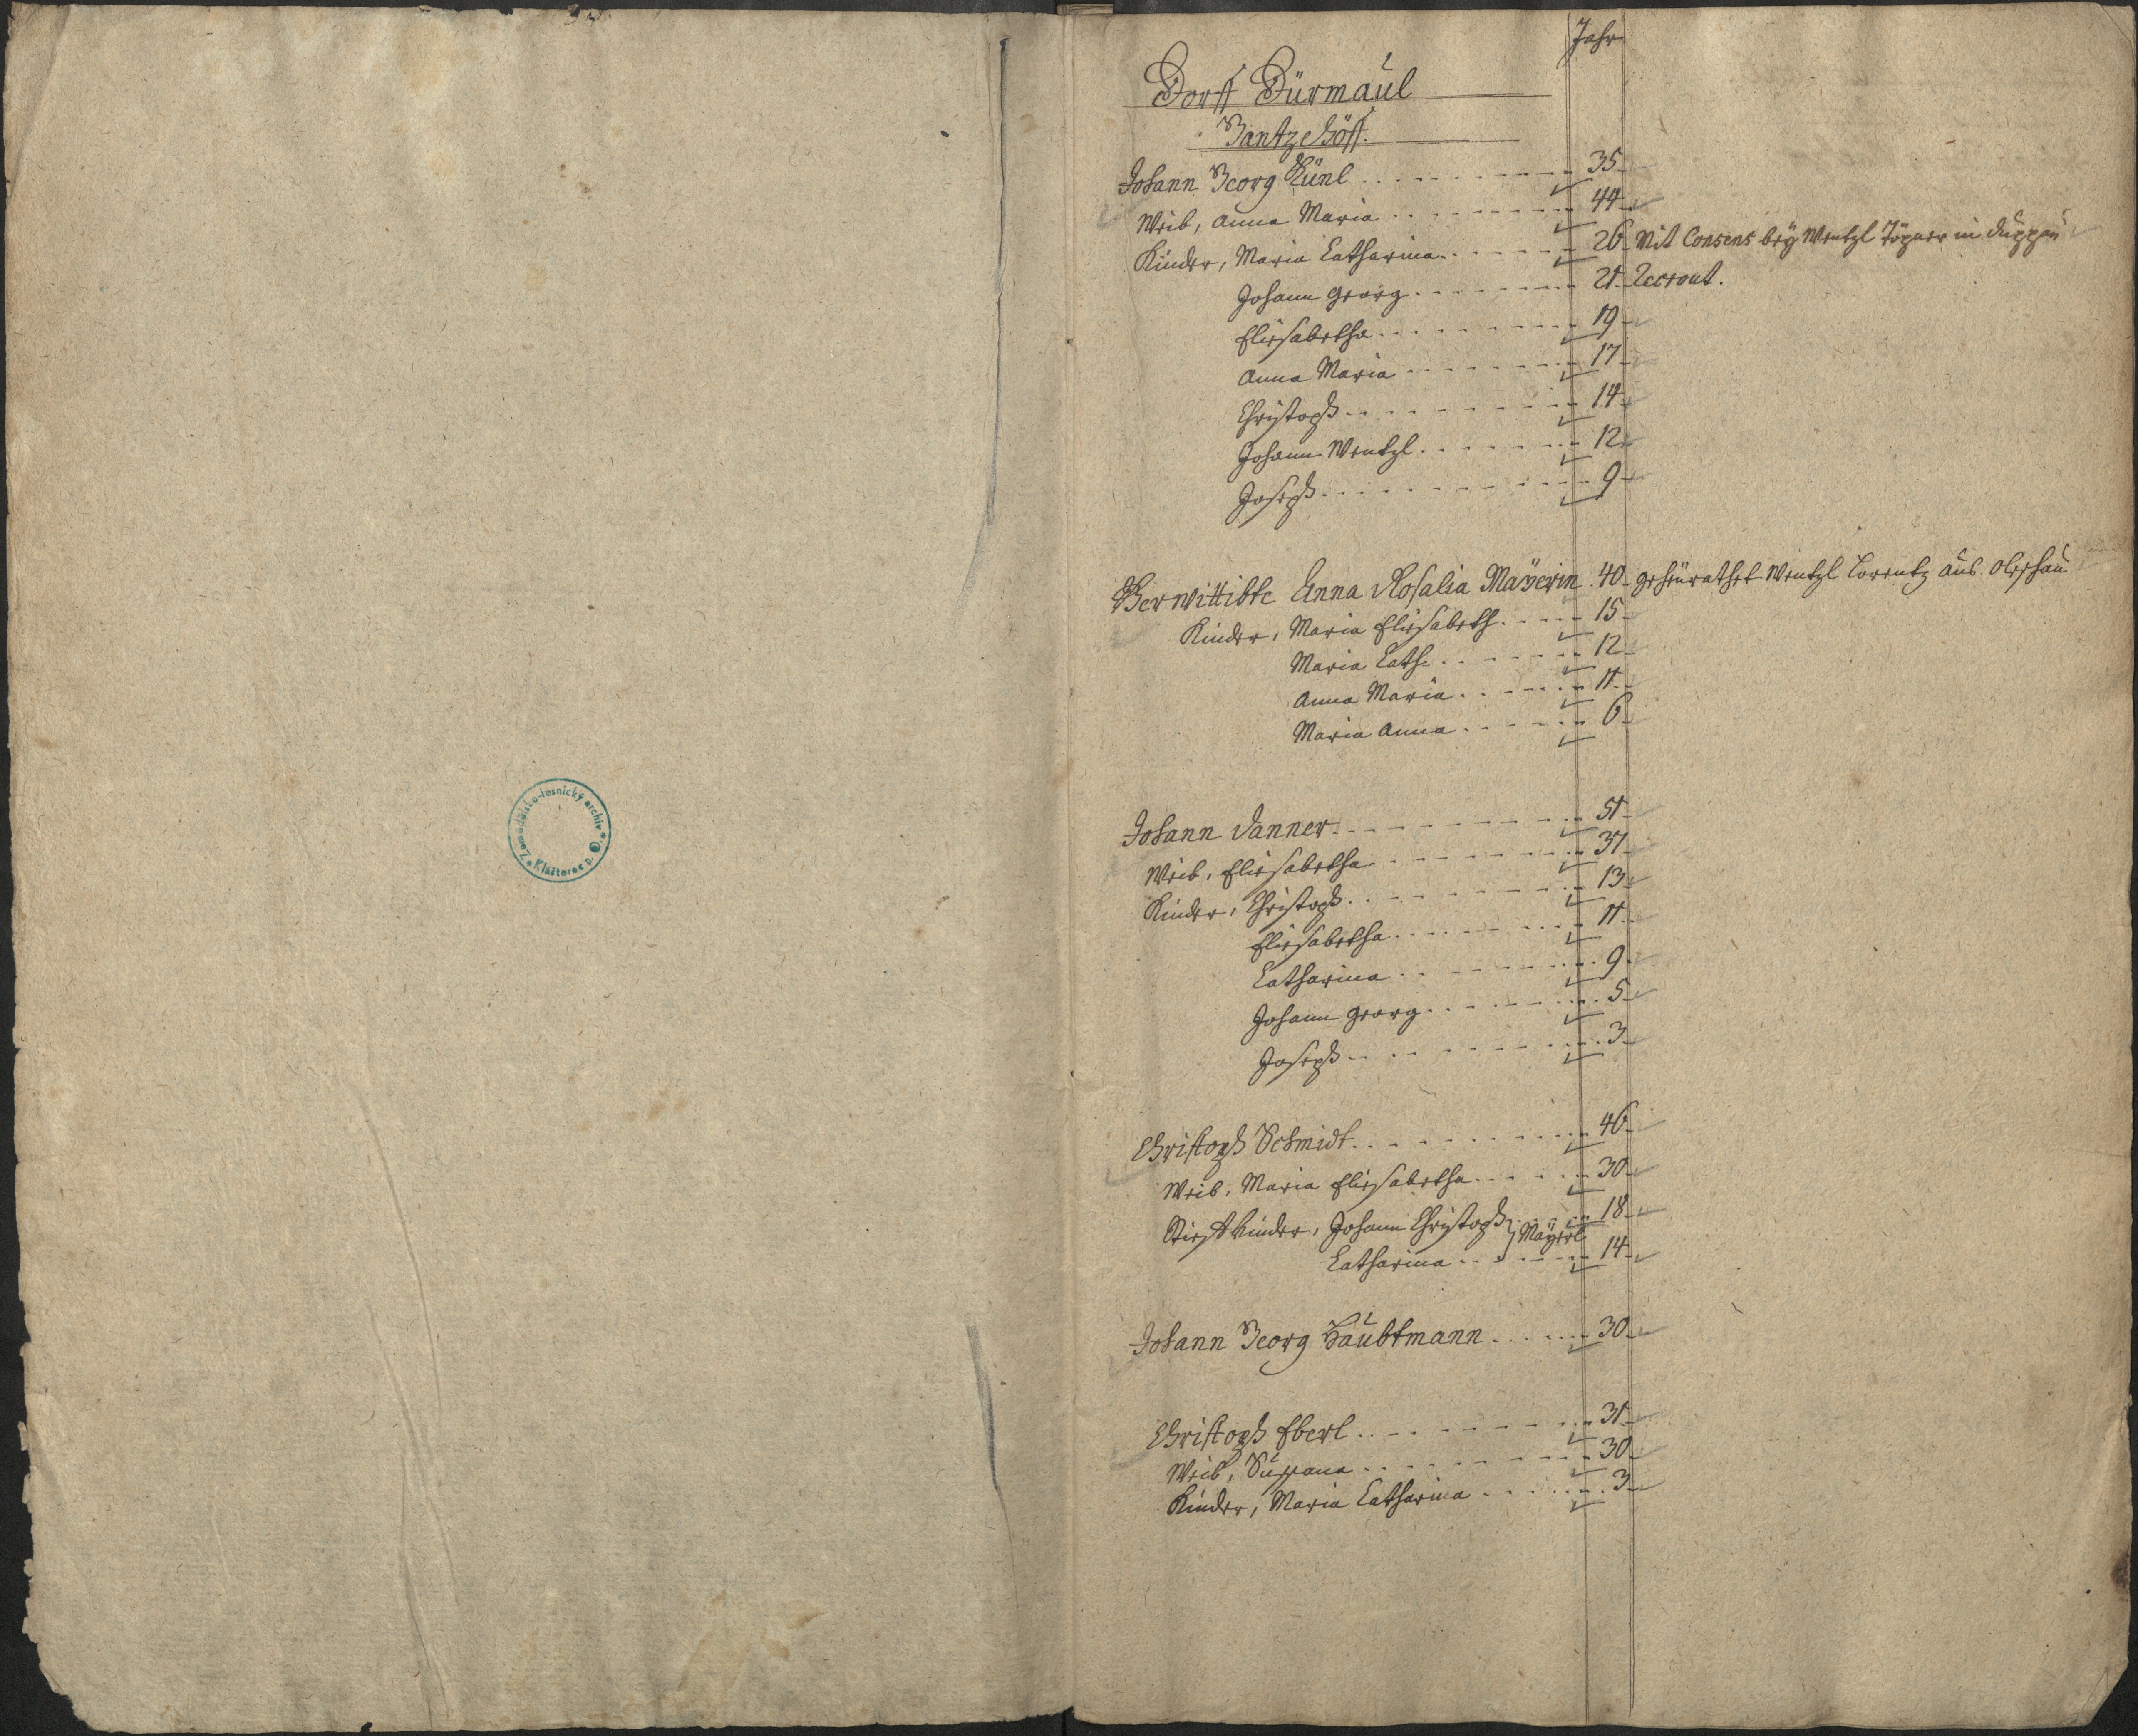 Zemědělsko-lesnický archiv
Klášterec n. O.
Jahr
Dorff Dürmaul
Gantze Höff.
Johann Georg Künl 35
Weib, Anna Maria 44
Kinder, Maria Catharina 26 Mit Consens bey Wentzl in Duppau
Johann Georg 21 Recrout.
Elisabetha 19
Anna Maria 17
Christoph 14
Johann Wentzl 12
Joseph 9
Verwittibte Anna Rosalia Mayerin 40 geheurathet Wentzl Lorentz aus
Kinder, Maria Elisabeth 15
Maria Cath. 12
Anna Maria 11
Maria Anna 6
Johann Danner 51
Weib, Elisabetha 37
Kinder, Christoph 13
Elisabetha 11
Catharina 9
Johann Georg 5
Joseph 3
Christoph Schmidt 46
Weib, Maria Elisabetha 30
Stiefkinder, Johann Christoph } Mayerl 18
Catharina 14
Johann Georg Haubtmann 30
Christoph Eberl 31
Weib, Susana 30
Kinder, Maria Catharina 3